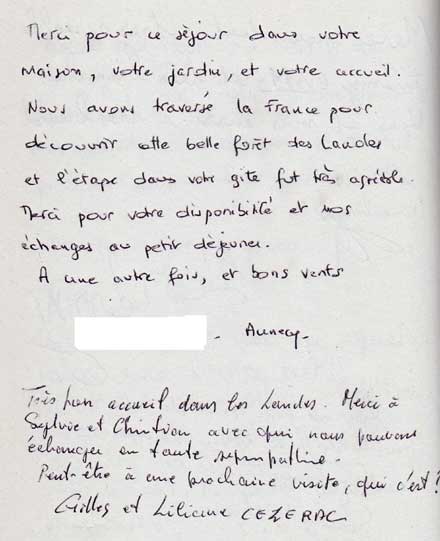 Merci pour ce séjour dans votre
Maison, votre jardin, et votre accueil.
Nous avons traversé la France pour
découvrir cette belle forêt des Landes
et l'étape dans votre gîte fut très agréable.
Merci pour votre disponibilité et nos
échanges au petit déjeuner.
A une autre fois, et bons vents
- Annecy-
Très bon accueil dans les Landes. Merci à
Sylvie et Christian avec qui nous pouvons
échanger en toute sympathie.
Peut-être à une prochaine visite, qui c'est !
Gilles et Liliane CEZERAC